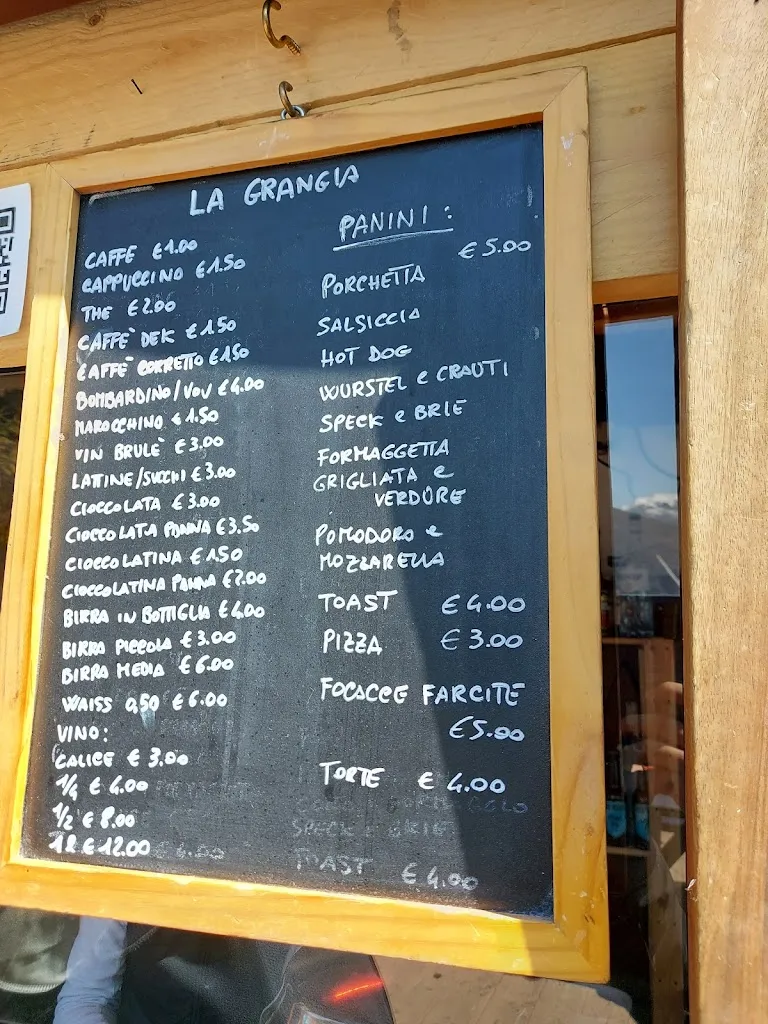 LA GRANGIA
CAFFE €1.00
CAPPUCCINO €1.50
THE €2.00
CAFFE' DEK €1.50
CAFFE' CORRETTO €1.50
BOMBARDINO/VOV €4.00
MAROCCHINO €1.50
VIN BRULE' €3.00
LATINE/SUCCHI €3.00
CIOCCOLATA €3.00
CIOCCOLATA PANNA €3.50
CIOCCOLATINA €1.50
CIOCCOLATINA PANNA €2.00
BIRRA IN BOTTIGLIA €4.00
BIRRA PICCOLA €3.00
BIRRA MEDIA €6.00
WAISS 0,50 €6.00
VINO:
CALICE €3.00
1/4 €4.00
1/2 €8.00
1 L €12.00
PANINI:
€5.00
PORCHETTA
SALSICCIA
HOT DOG
WURSTEL e CRAUTI
SPECK e BRIE
FORMAGGETTA
GRIGLIATA e
VERDURE
POMODORO e
MOZZARELLA
TOAST €4.00
PIZZA €3.00
FOCACCE FARCITE
€5.00
TORTE €4.00
SPECK e BRIE
TOAST €4.00